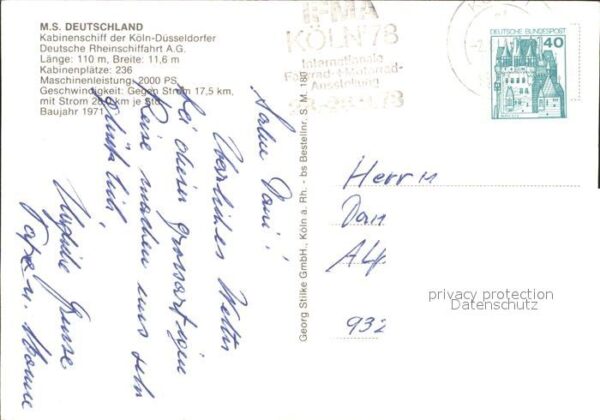 M.S. DEUTSCHLAND
Kabinenschiff der Köln-Düsseldorfer
Deutsche Rheinschiffahrt A.G.
Länge: 110 m, Breite: 11,6 m
Kabinenplätze: 236
Maschinenleistung: 2000 PS
Geschwindigkeit: Gegen Strom 17,5 km,
mit Strom 28,0 km je Std.
Baujahr 1971
IFMA
KÖLN '78
Internationale
Fahrrad- + Motorrad-
Ausstellung
DEUTSCHE BUNDESPOST
40
Georg Stilke GmbH., Köln a. Rh. - bs Bestellnr. S. M. 180
Herrliches Wetter
bei einer grossartigen
Reise machen uns sehr
glücklich.
Herrn
Dan
Alp
932
privacy protection
Datenschutz